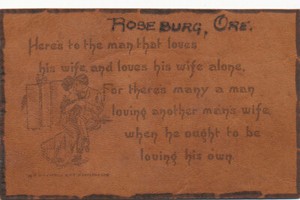 ROSEBURG, ORE.
Here's to the man that loves
his wife, and loves his wife alone,
For there's many a man
loving another man's wife
when he ought to be
loving his own.